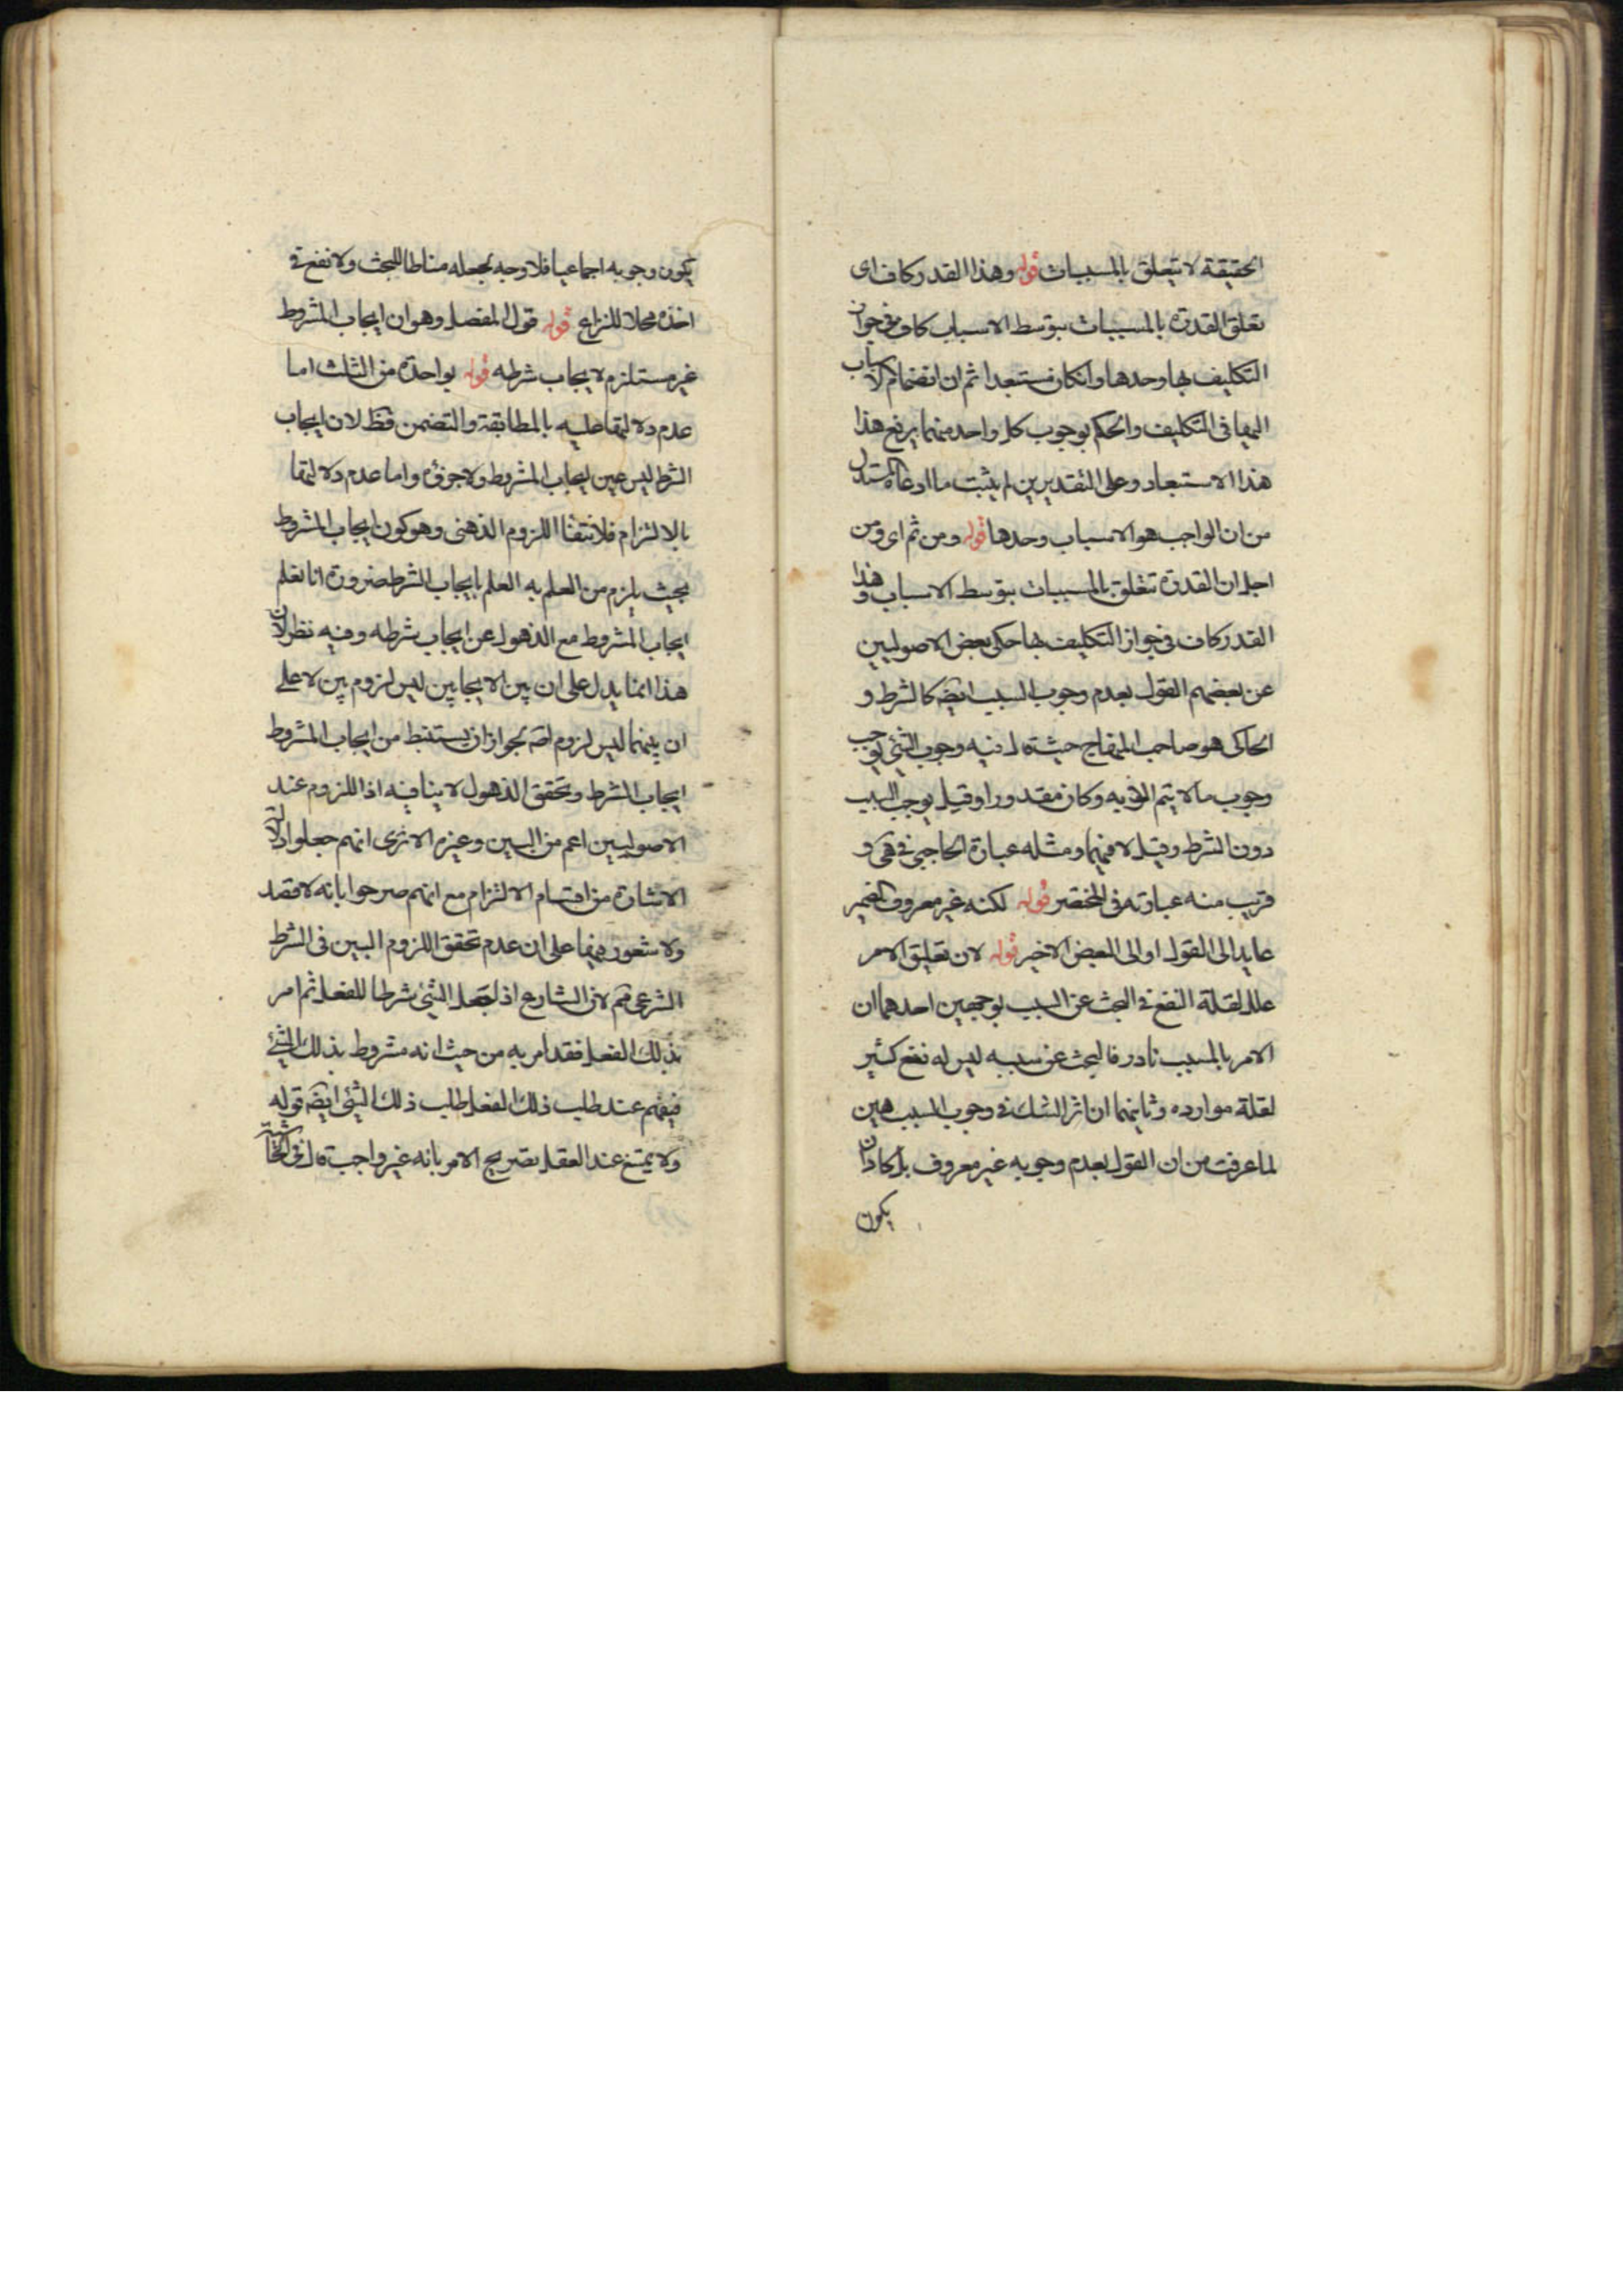 الحقيقة لا تتعلق بالمسببات قوله وهذا القدر كاف اى
تعلق القدرة بالمسببات بتوسط الاسباب كاف فى جواز
التكليف بها وحدها وانكان مستبعدا ثم ان انضمام الاسباب
اليها فى التكليف والحكم بوجوب كل واحد منهما يرفع هذا
هذا الاستبعاد وعلى التقديرين لم يثبت ما ادعاه المستدل
من ان الواجب هو الاسباب وحدها قوله ومن ثم اى ومن
اجل ان القدرة تتعلق بالمسببات بتوسط الاسباب وهذا
القدر كاف فى جواز التكليف بها حكى بعض الاصوليين
عن بعضهم القول بعدم وجوب السبب ايضه كالشرط و
الحاكى هو صاحب المنهاج حيث قال فيه وجوب الشئ يوجب
وجوب ما لا يتم الا به وكان مقدورا وقيل يوجب السبب
دون الشرط وقيل لا فيهما ومثله عبارة الحاجبى فى هى و
قريب منه عبارته فى المختصر قوله لكنه غير معروف الضمير
عايد الى القول او الى البعض الاخير قوله لان تعليق الامر
علل لقلة النفع فى البحث عن السبب بوجهين احدهما ان
الامر بالمسبب نادر فالبحث عن سببه ليس له نفع كثير
لقلة موارده وثانيهما ان اثر الشك فى وجوب المسبب هين
لما عرفت من ان القول بعدم وجوبه غير معروف بل كاد ان
يكون
يكون وجوبه اجماعيا فلا وجه لجعله مناطا للبحث ولا نفع فى
اخذه محلا للنزاع قوله قول المفصل وهو ان ايجاب المشروط
غير مستلزم لايجاب شرطه قوله بواحدة من الثلث اما
عدم دلالتها عليه بالمطابقة والتضمن فظ لان ايجاب
الشرط ليس عين ايجاب المشروط ولا جزؤه واما عدم دلالتها
بالالتزام فلانتفاء اللزوم الذهنى وهو كون ايجاب المشروط
بحيث يلزم من العلم به العلم بايجاب الشرط ضرورة انا نعلم
ايجاب المشروط مع الذهول عن ايجاب شرطه وفيه نظر لان
هذا انما يدل على ان بين الايجابين ليس لزوم بين لا على
ان بينهما ليس لزوم اصه لجواز ان يستنبط من ايجاب المشروط
ايجاب الشرط وتحقق الذهول لا ينافيه اذ اللزوم عند
الاصوليين اعم من البين وغيره الا ترى انهم جعلوا دلالة
الاشارة من اقسام الالتزام مع انهم صرحوا بانه لا قصد
ولا شعور فيها على ان عدم تحقق اللزوم البين فى الشرط
الشرعى مم لان الشارع اذا جعل الشئ شرطا للفعل ثم امر
بذلك الفعل فقد امر به من حيث انه مشروط بذلك الشئ
فيفهم عند طلب ذلك الفعل طلب ذلك الشئ ايضه قوله
ولا يمتنع عند العقل تصريح الامر بانه غير واجب قال فى الحاشية